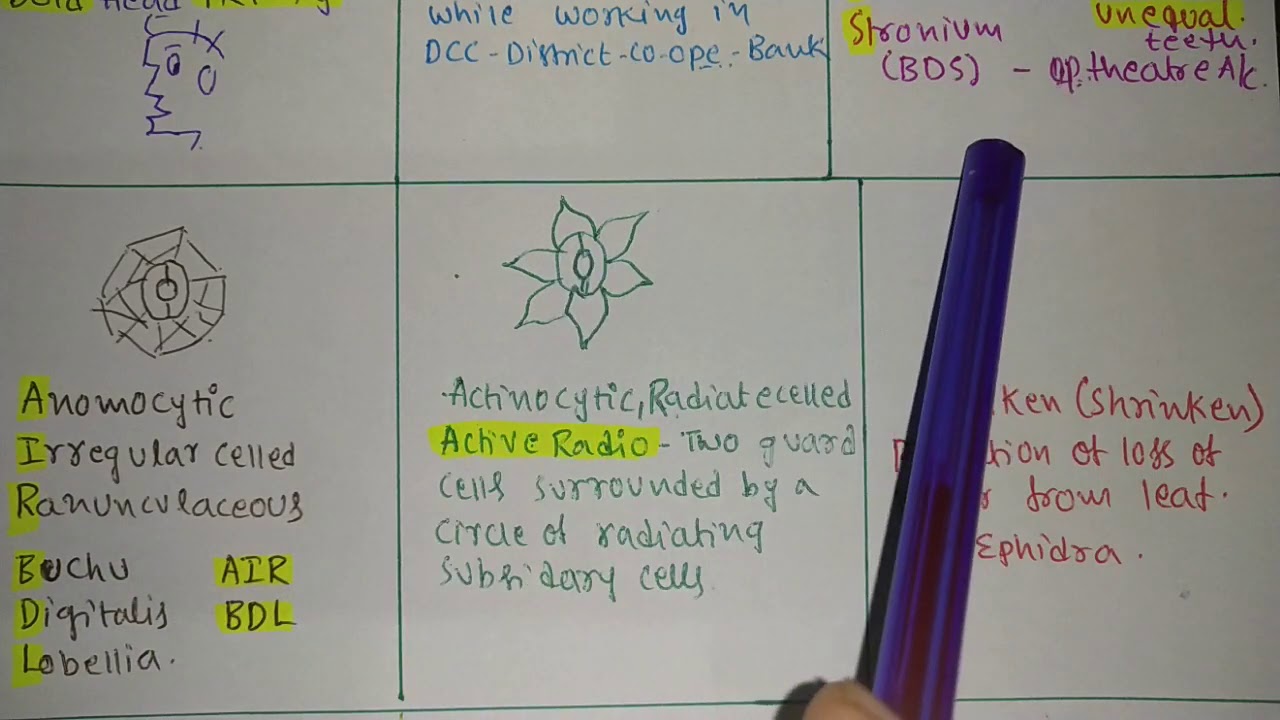 Head
while working in
DCC-District-co-ope.-Bank
unequal.
teeth.
Stronium
(BDS) - op.theatre Ak.
Anomocytic
Irregular celled
Ranunculaceous
Buchu AIR
Digitalis BDL
Lobellia.
Actinocytic, Radiate celled
Active Radio - Two guard
cells surrounded by a
circle of radiating
subsidary cells.
ken (Shrinken)
tion of loss of
from leaf.
Ephidra.